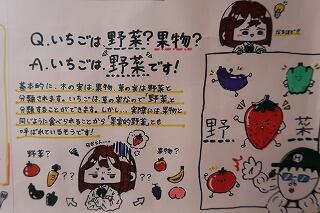 Q.いちごは、野菜？果物？
A.いちごは、野菜です！
基本的に、木の実は、果物、草の実は野菜と
分類されます。いちごは、草の実なので野菜と
分類することができます。しかし、実際には果物と
同じように食べられることから「果実的野菜」とも
呼ばれているそうです！
野菜？
果物？
??
??
野
菜